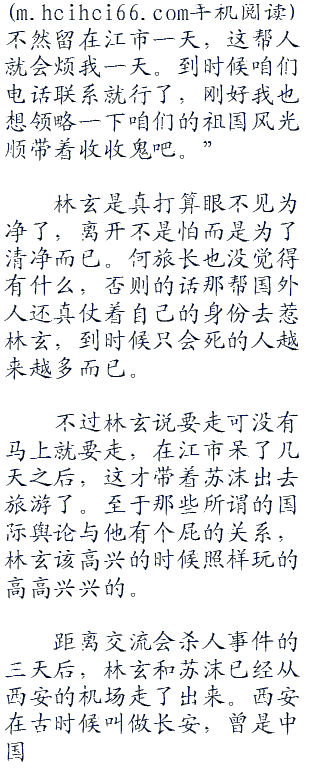 (m.hcihci66.com手机阅读)
不然留在江市一天，这帮人
就会烦我一天。到时候咱们
电话联系就行了，刚好我也
想领略一下咱们的祖国风光
顺带着收收鬼吧。”
林玄是真打算眼不见为
净了，离开不是怕而是为了
清净而已。何旅长也没觉得
有什么，否则的话那帮国外
人还真仗着自己的身份去惹
林玄，到时候只会死的人越
来越多而已。
不过林玄说要走可没有
马上就要走，在江市呆了几
天之后，这才带着苏沫出去
旅游了。至于那些所谓的国
际舆论与他有个屁的关系，
林玄该高兴的时候照样玩的
高高兴兴的。
距离交流会杀人事件的
三天后，林玄和苏沫已经从
西安的机场走了出来。西安
在古时候叫做长安，曾是中
国